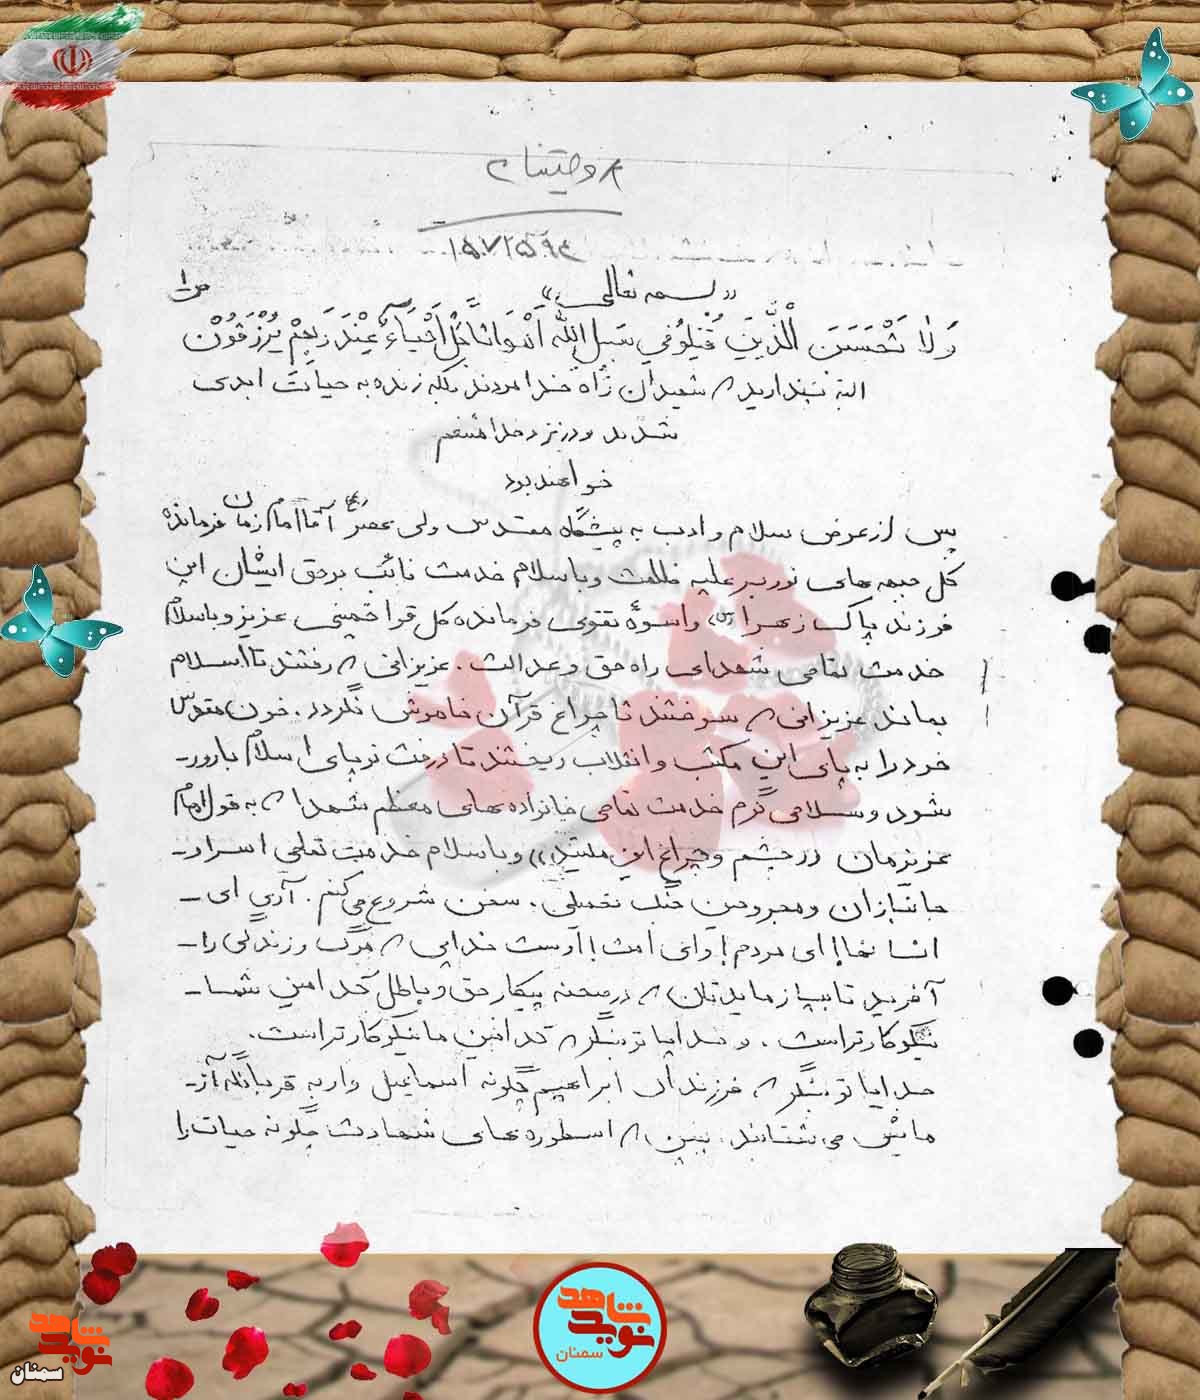 وصیتنامه
«بسمه تعالی»
ص۱
وَلا تَحْسَبَنَ الَّذینَ قُتِلُو فی سَبیلِ اللهِ اَمْواتاً بَلْ اَحْیاءٌ عِنْدَ رَبِهِمْ یُرْزَقُونْ
البته نپندارید که شهیدان راه خدا مردند بلکه زنده به حیات ابدی
شدند و در نزد خدا متنعم
خواهند بود
پس از عرض سلام و ادب به پیشگاه مقدس ولی عصر (عج) آقا امام زمان فرمانده
کل جبهه های نور بر علیه ظلمت و با سلام خدمت نائب بر حق ایشان این
فرزند پاک زهرا (س) و اسوهٔ تقوی فرمانده کل قوا خمینی عزیز و با سلام
خدمت تمامی شهدای راه حق و عدالت. عزیزانی که رفتند تا اسلام
بماند عزیزانی که سوختند تا چراغ قرآن خاموش نگردد. خون مقدس
خود را به پای این مکتب و انقلاب ریختند تا درخت نوپای اسلام بارور-
شود و سلامی گرم خدمت تمامی خانواده های معظم شهدا که به قول امام
عزیزمان «چشم و چراغ این ملتند» و با سلام خدمت تمامی اسرا و-
جانبازان و مجروحین جنگ تحمیلی. سخن شروع می کنم. آری ای-
انسانها! ای مردم! وای امت! اوست خدایی که مرگ و زندگی را-
آفرید تا بیازمایدتان که در صحنه پیکار حق و باطل کدامین شما-
نیکوکارتر است. و خدایا تو بنگر که کدامین ما نیکوکارتر است.
خدایا تو بنگر که فرزندان ابراهیم چگونه اسماعیل وار به قربانگه آز-
مایش می شتابند. ببین که اسطوره های شهادت چگونه حیات را
نوید شاهد
سمنان
نوید شاهد
سمنان